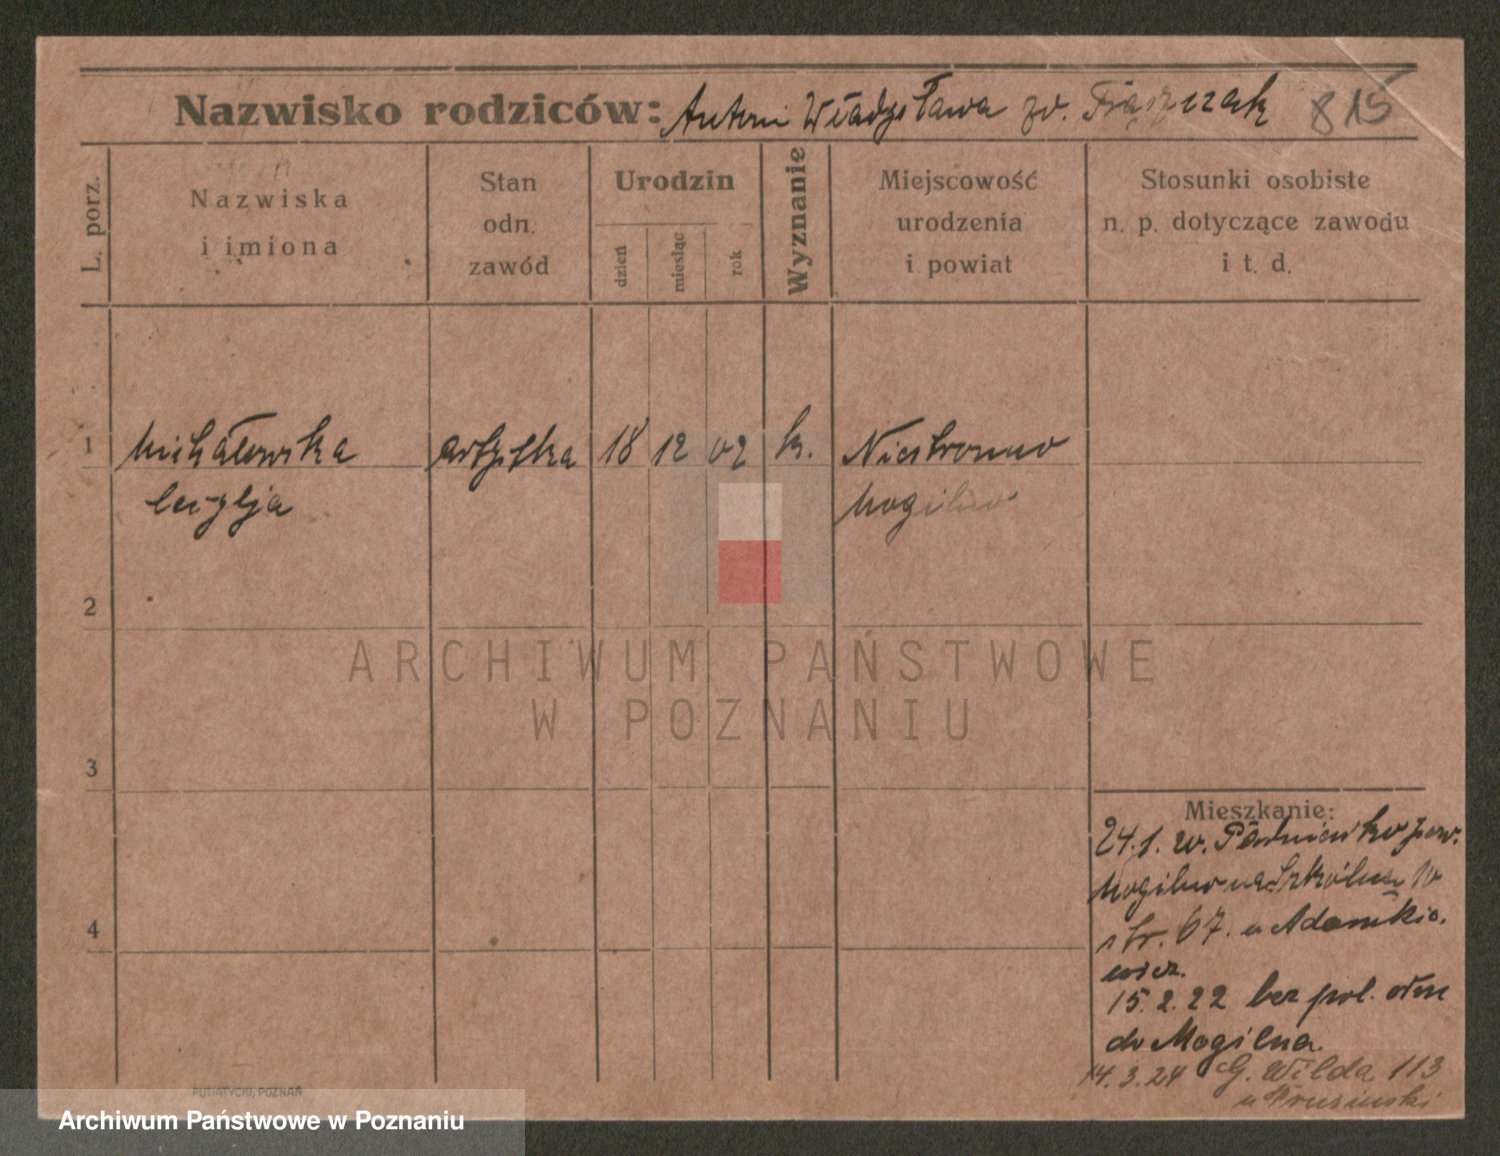 Nazwisko rodziców: Antoni Władysława zd. Frąszczak 815
L. porz.
Nazwiska
i imiona
Stan
odn.
zawód
Urodzin
dzień
miesiąc
rok
Wyznanie
Miejscowość
urodzenia
i powiat
Stosunki osobiste
n. p. dotyczące zawodu
i t. d.
1 Michałowska artystka 18 12 02 k. Niestronno
Mogilno
2
3
4
Mieszkanie:
24.1. w. pow.
Mogilno na
67. u Adamkie-
wicz.
15.2.22 bez pol.
do Mogilna.
14.3.24 G. Wilda 113
u Prusinski
PUTIATYCKI, POZNAŃ
ARCHIWUM PAŃSTWOWE
W POZNANIU
Archiwum Państwowe w Poznaniu